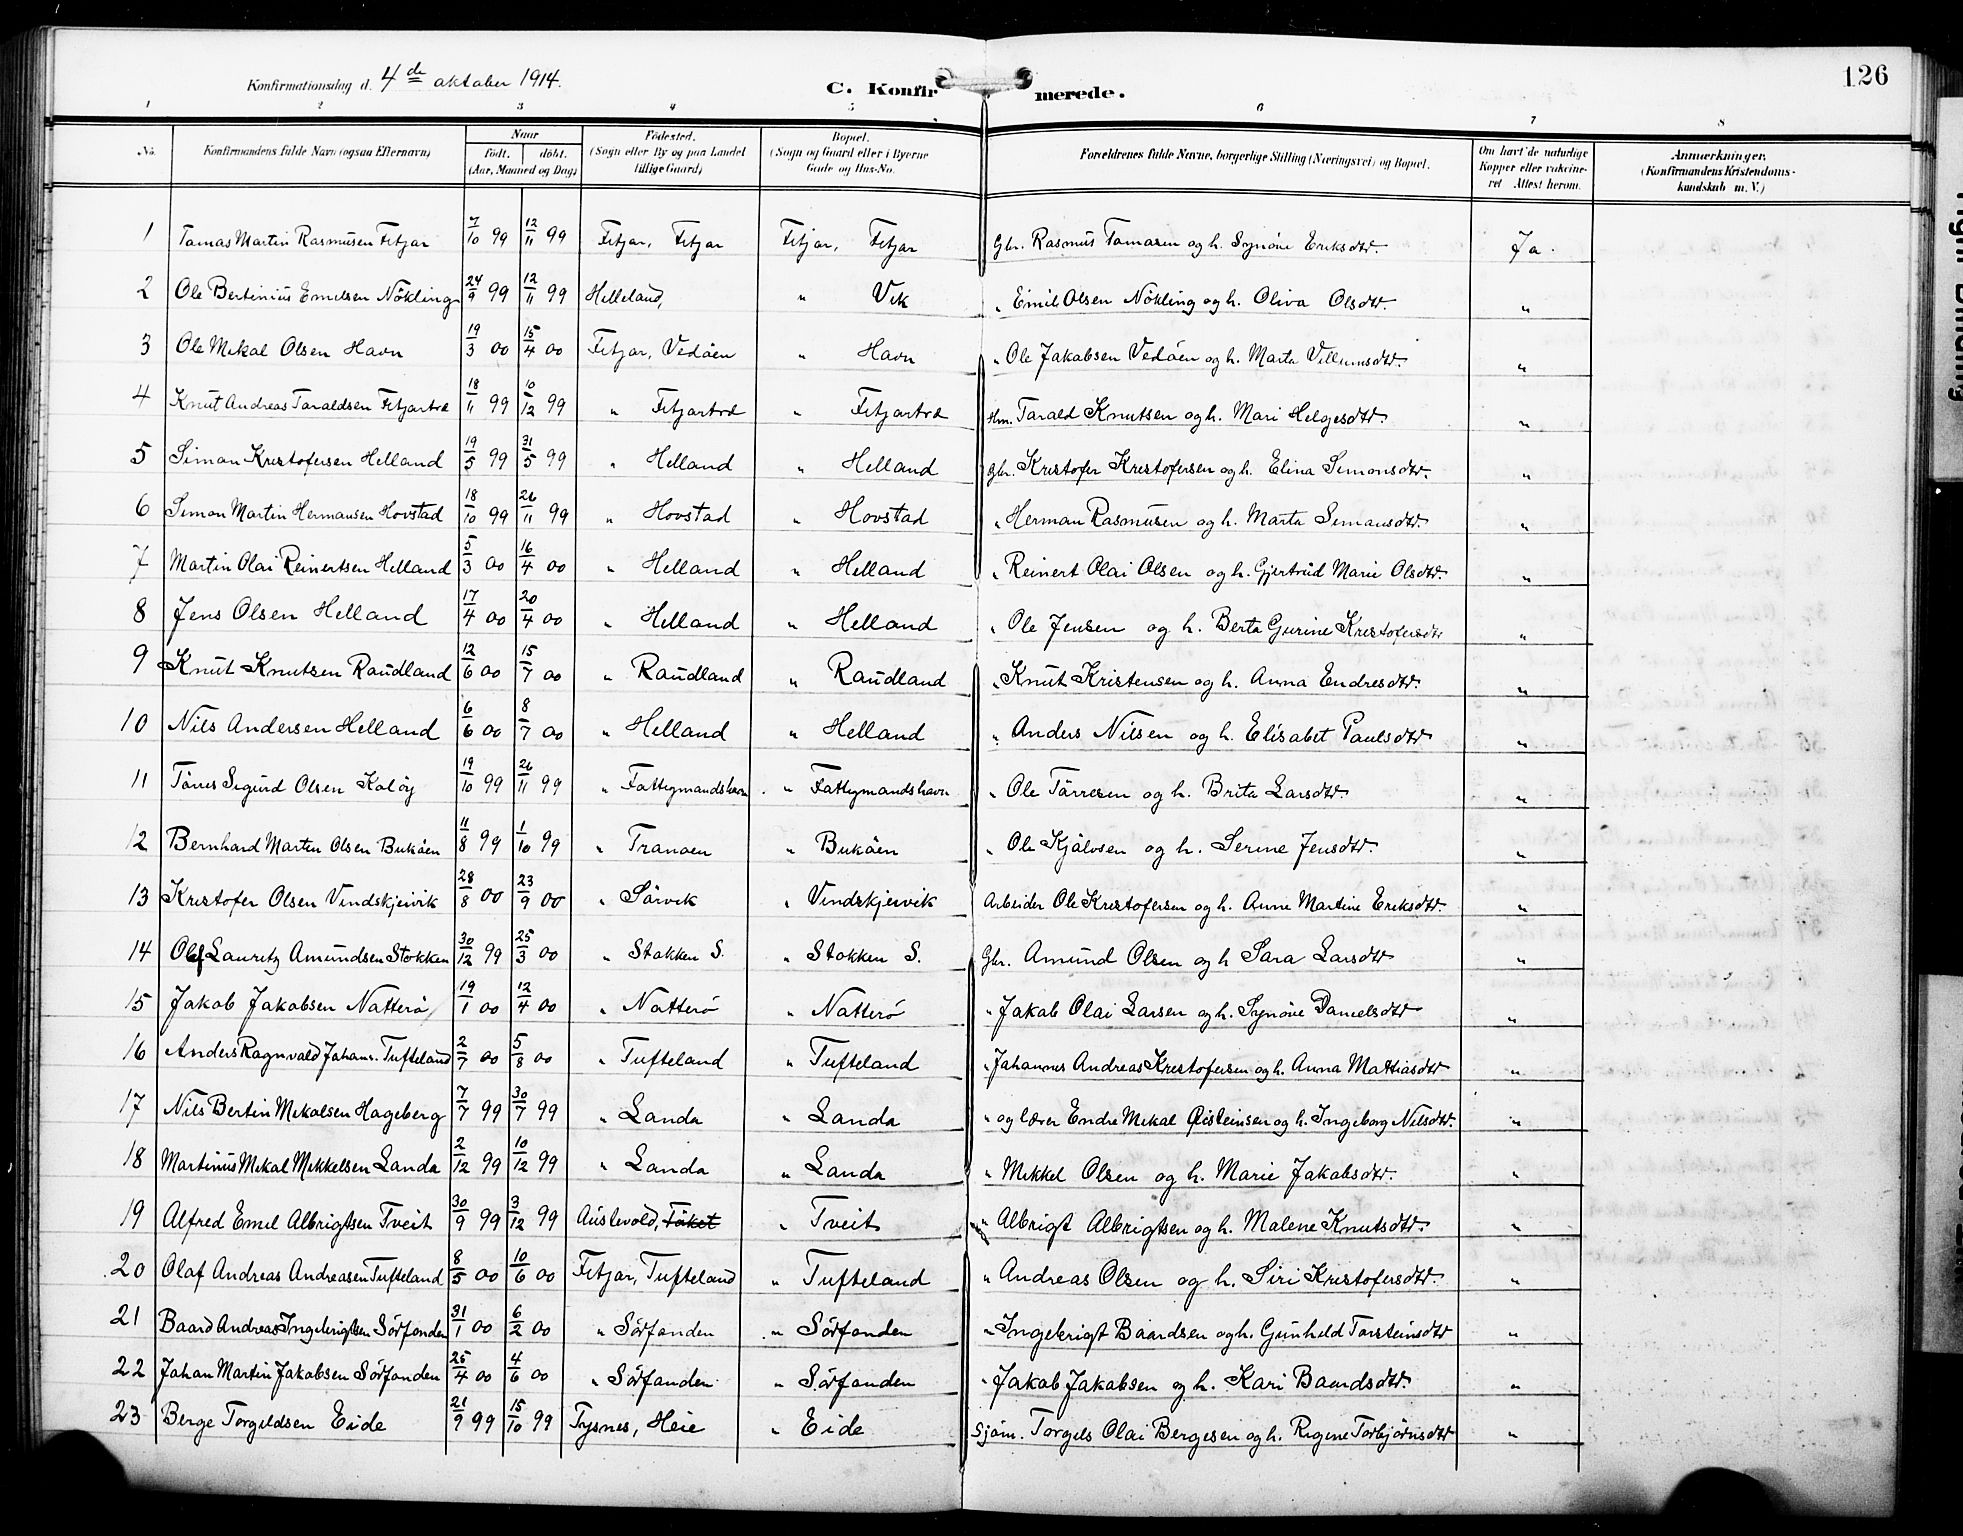 Konfirmationsdag d. 4de oktober 1914.
C. Konfirmerede.
126
1 2 3 4 5 6 7 8
No. Konfirmandens fulde Navn (ogsaa Efternavn) Naar født. døbt. (Aar, Maaned og Dag) Fødested. (Sogn eller By og paa Landet tillige Gaard) Bopæl. (Sogn og Gaard eller i Byerne Gade og Hus-No. Forældrenes fulde Navne, borgerlige Stilling (Næringsvei) og Bopæl. Om havt de naturlige Kopper eller vakcineret Attest herom. Anmærkninger, (Konfirmandens Kristendomskundskab m. V.)
1 Tomas Martin Rasmusen Fitjar 7/10 99 12/11 99 Fitjar, Fitjar Fitjar, Fitjar Gbr. Rasmus Tomasen og h. Synöve Eriksdtr. Ja.
2 Ole Bertinius Emilsen Nökling 24/9 99 12/11 99 Helleland, " Vik " Emil Olsen Nökling og h. Oliva Olsdtr. "
3 Ole Mikal Olsen Havn 19/3 00 15/4 00 Fitjar, Vedöen " Havn " Ole Jakobsen Vedöen og h. Marta Villumsdtr. "
4 Knut Andreas Taraldsen Fitjartræ 18/11 99 10/12 99 " Fitjartræ " Fitjartræ Hm. Tarald Knutsen og h. Mari Helgesdtr. "
5 Simon Kristofersen Helland 19/5 99 31/5 99 " Helland " Helland Gbr. Kristofer Kristofersen og h. Elina Simonsdtr. "
6 Simon Martin Hermansen Hovstad 18/10 99 26/11 99 " Hovstad " Hovstad " Herman Rasmusen og h. Marta Simonsdtr. "
7 Martin Olai Reinertsen Helland 5/3 00 16/4 00 " Helland " Helland " Reinert Olai Olsen og h. Gjertrud Marie Olsdtr. "
8 Jens Olsen Helland 17/4 00 20/4 00 " Helland " Helland " Ole Jensen og h. Berta Gurine Kristofersdtr "
9 Knut Knutsen Raudland 12/6 00 15/7 00 " Raudland " Raudland " Knut Kristensen og h. Anna Endresdtr. "
10 Nils Andersen Helland 6/6 00 8/7 00 " Helland " Helland " Anders Nilsen og h. Elisabet Paulsdtr "
11 Törres Sigurd Olsen Kalöy 19/10 99 26/11 99 " Fattigmandshavn " Fattigmandshavn " Ole Törresen og h. Brita Larsdtr. "
12 Bernhard Martin Olsen Buköen 11/8 99 1/10 99 " Tranöen " Buköen " Ole Kjölvsen og h. Serine Jensdtr. "
13 Kristofer Olsen Vindskjeivik 28/8 00 23/9 00 " Sörvik " Vindskjeivik Arbeider Ole Kristofersen og h. Anne Martine Eriksdtr. "
14 Olaf Lauritz Amundsen Stokken 30/12 99 25/3 00 " Stokken S. " Stokken S. Gbr. Amund Olsen og h Sara Larsdtr "
15 Jakob Jakobsen Natterö 19/1 00 12/4 00 " Natterö " Natterö " Jakob Olai Larsen og h. Synöve Danielsdtr "
16 Anders Ragnvald Johans. Tufteland 2/7 00 5/8 00 " Tufteland " Tufteland " Johannes Andreas Kristofersen og h. Anna Mattiasdtr "
17 Nils Bertin Mikalsen Hageberg 7/7 99 30/7 99 " Landa " Landa " og lærer Endre Mikal Öisteinsen og h. Ingeborg Nilsdtr. "
18 Martinius Mikal Mikkelsen Landa 2/12 99 10/12 99 " Landa " Landa " Mikkel Olsen og h. Marie Jakobsdtr. "
19 Alfred Emil Albrigtsen Tveit 30/9 99 3/12 99 Austevold, Töket " Tveit " Albrigt Albrigtsen og h. Malene Knutsdtr. "
20 Olaf Andreas Andreasen Tufteland 8/5 00 10/6 00 Fitjar, Tufteland " Tufteland " Andreas Olsen og h. Siri Kristofersdtr. "
21 Baard Andreas Ingebrigtsen Sörfonden 31/1 00 6/2 00 " Sörfonden " Sörfonden " Ingebrigt Baardsen og h. Gunhild Torsteinsdtr "
22 Johan Martin Jakobsen Sörfonden 25/4 00 4/6 00 " Sörfonden " Sörfonden " Jakob Jakobsen og h. Kari Baardsdtr. "
23 Berge Torgeldsen Eide 21/9 99 15/10 99 Tysnes, Heie " Eide Sjöm. Torgils Olai Bergesen og h. Rigine Torbjörnsdtr "